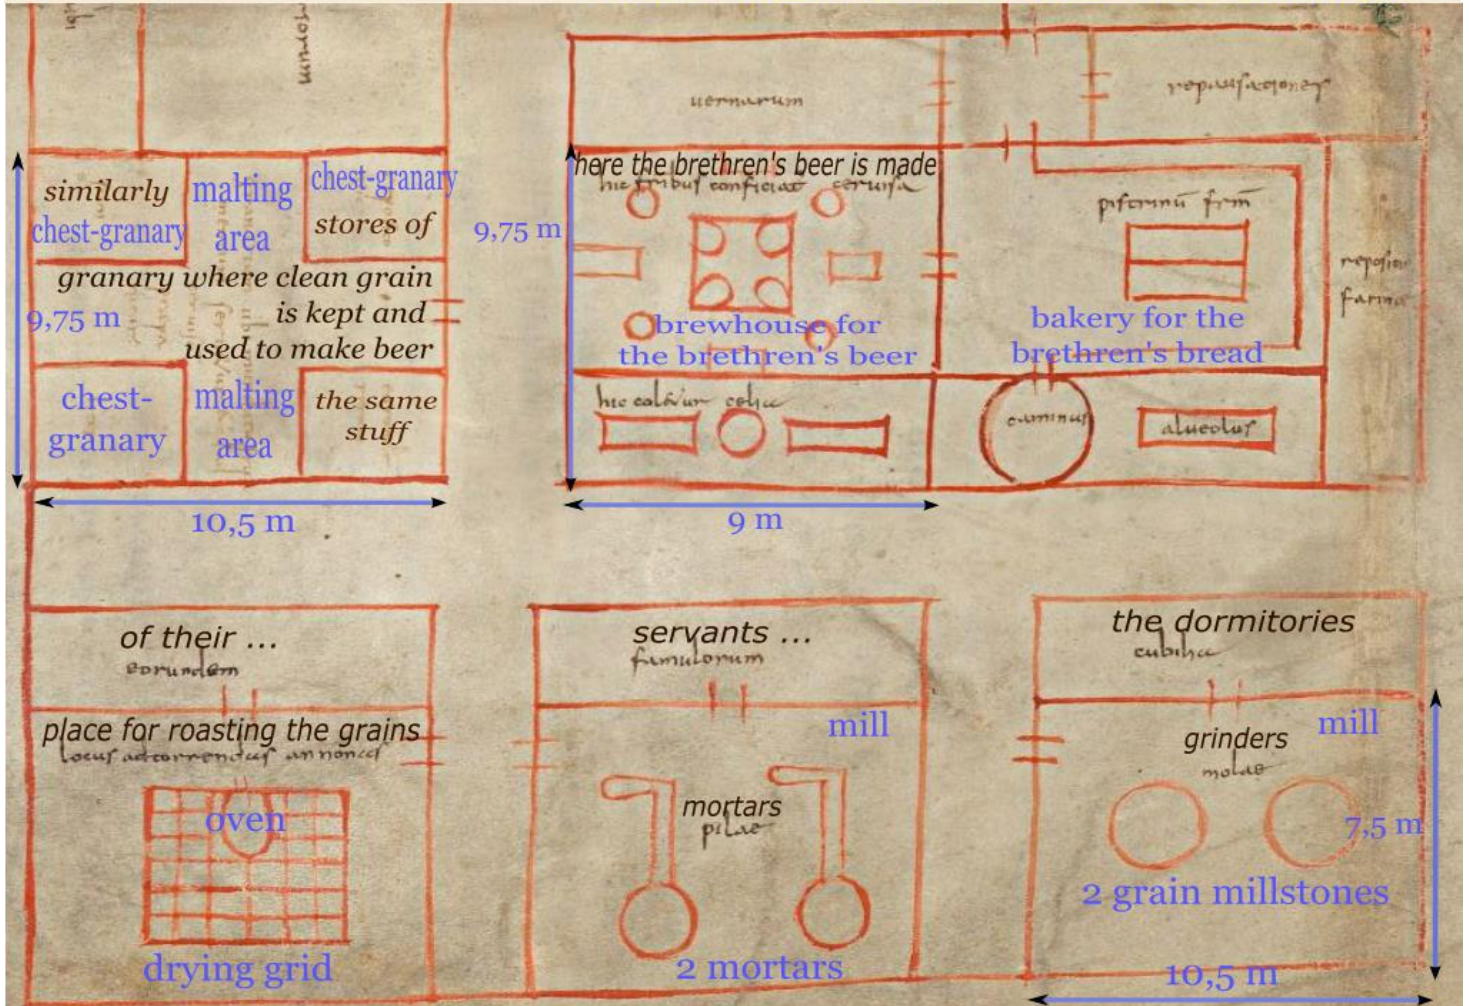 vernarum
repausationes
similarly
chest-granary
malting
area
chest-granary
stores of
granary where clean grain
is kept and
used to make beer
9,75 m
chest-
granary
malting
area
the same
stuff
10,5 m
9,75 m
here the brethren's beer is made
hic fribus conficiat cervisa
brewhouse for
the brethren's beer
9 m
pistrinū frm̄
bakery for the
brethren's bread
farina
caminus
alveolus
of their ...
eorundem
place for roasting the grains
locus ad torrendas annonas
oven
drying grid
servants ...
famulorum
mill
mortars
pilae
2 mortars
the dormitories
cubilia
mill
grinders
molae
7,5 m
2 grain millstones
10,5 m